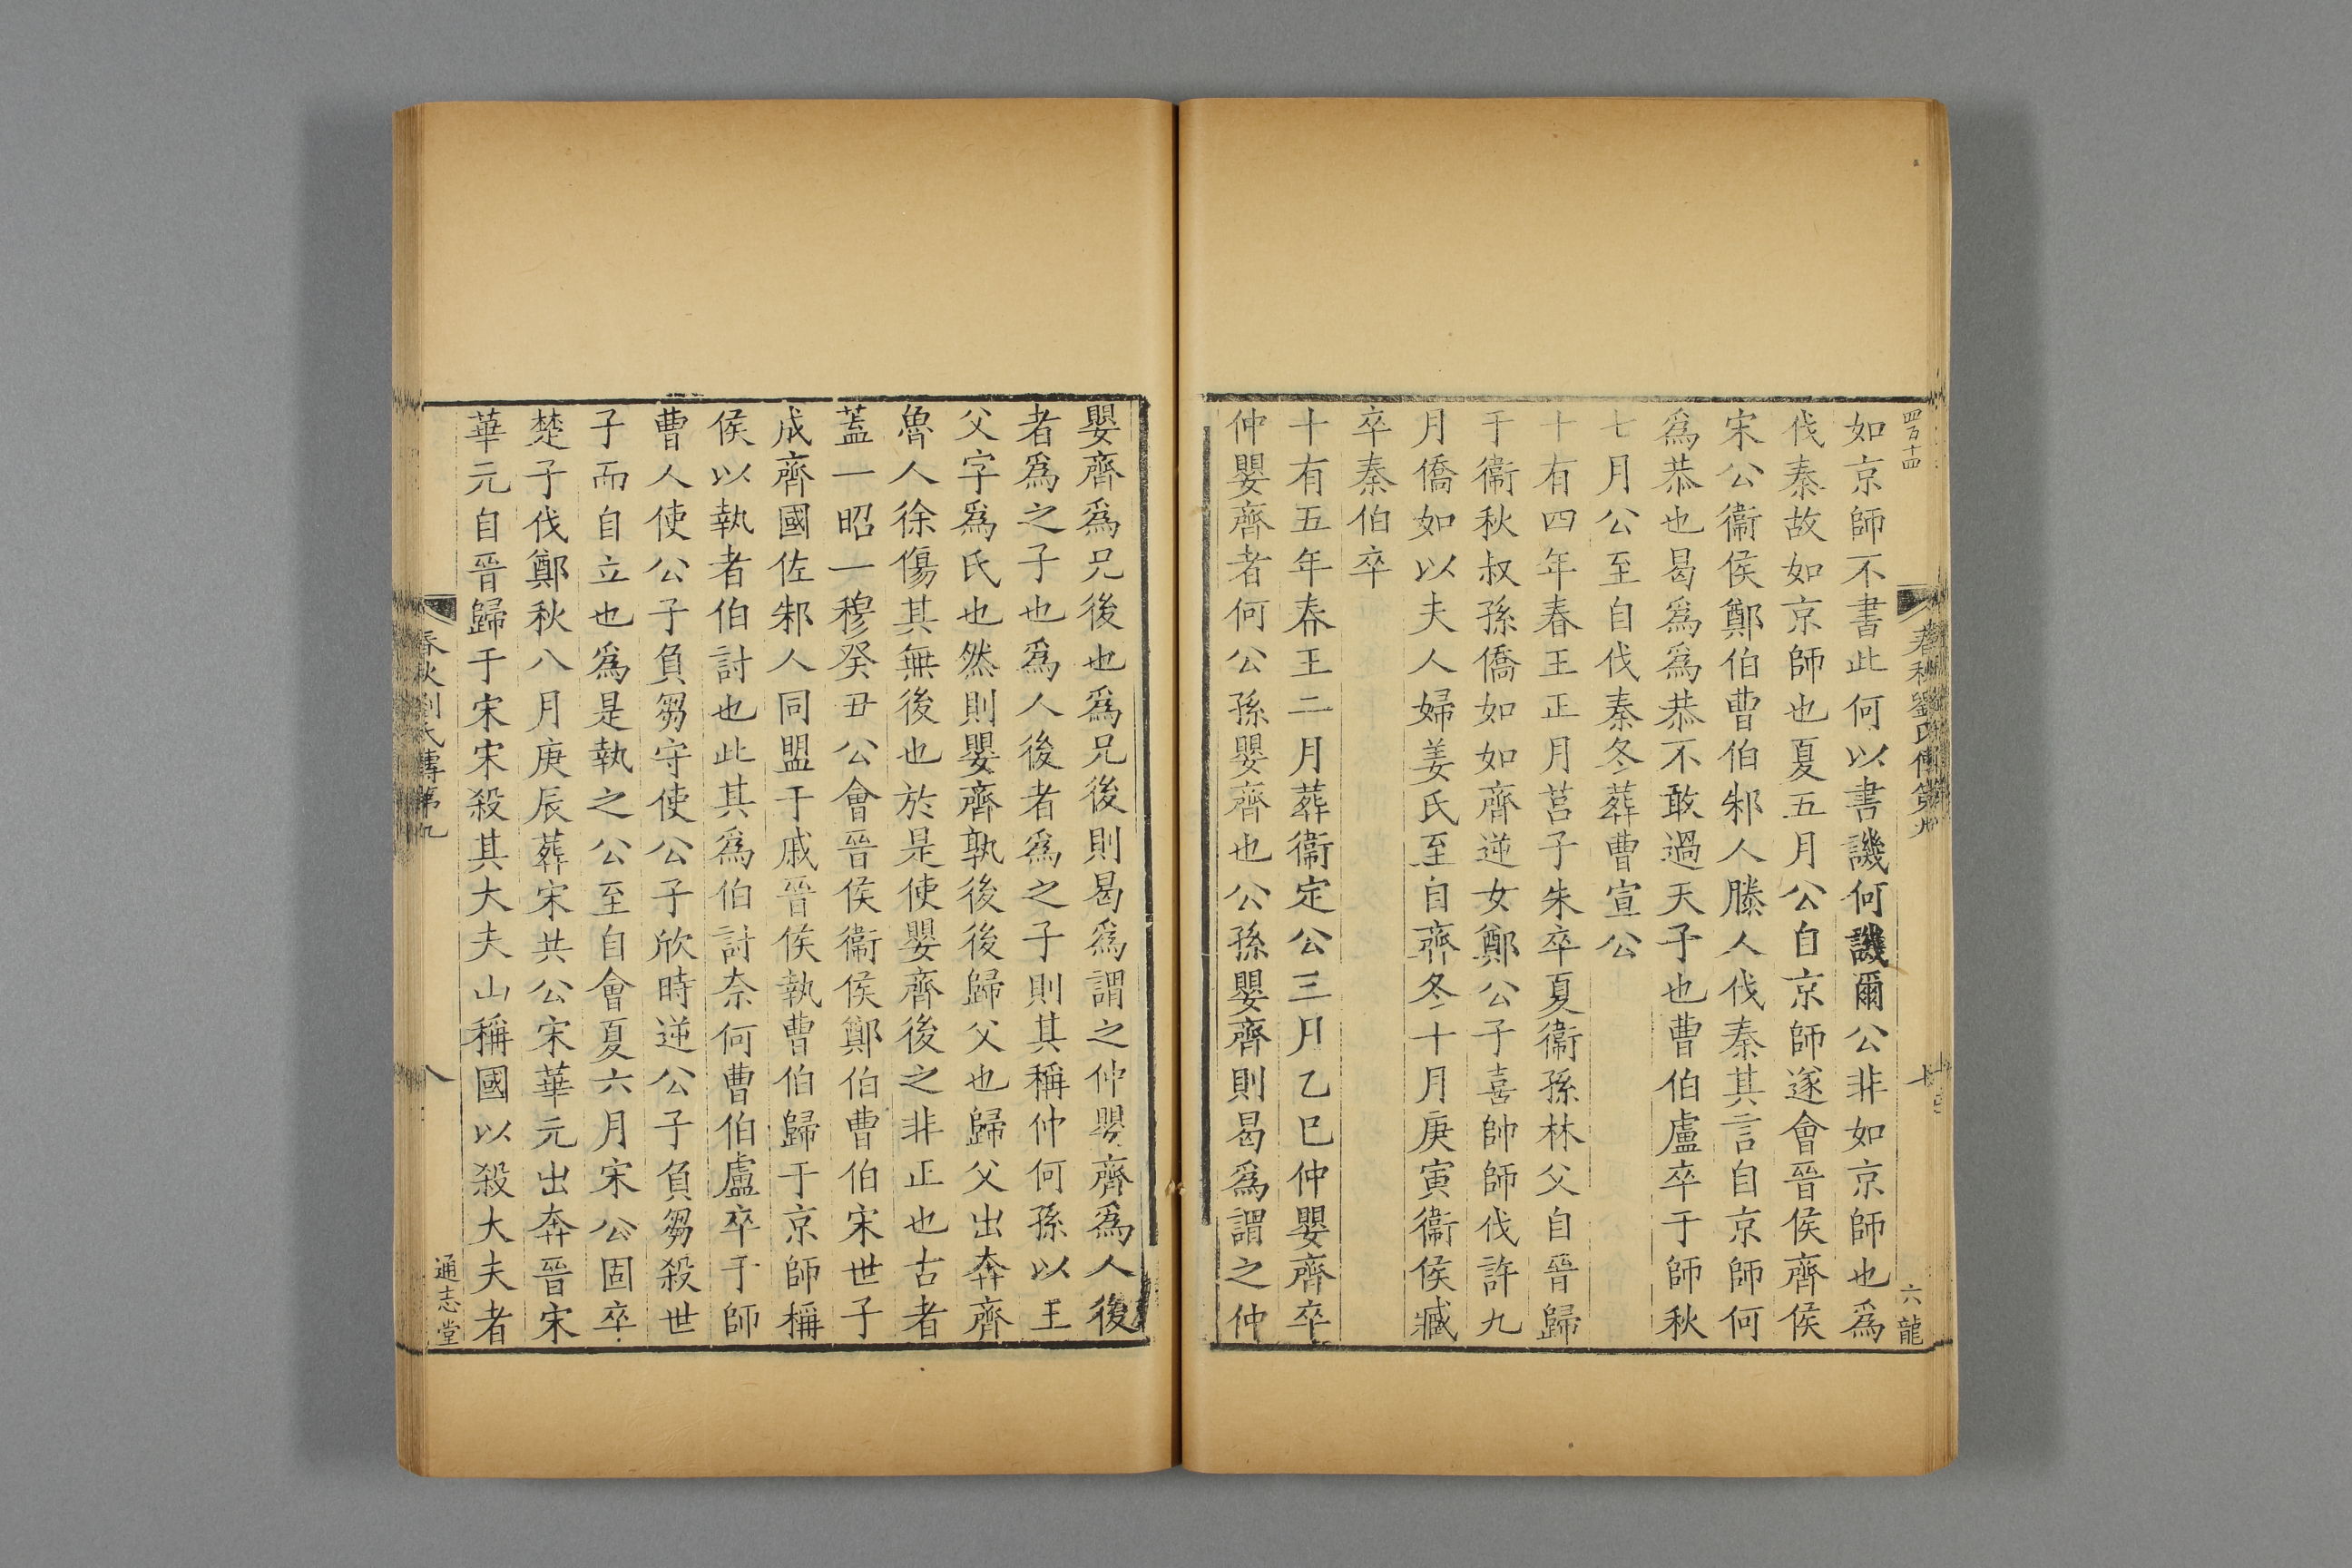 四百十四
春秋劉氏傳第九
七
六龍
如京師不書此何以書譏何譏爾公非如京師也爲
伐秦故如京師也夏五月公自京師遂會晉侯齊侯
宋公衞侯鄭伯曹伯邾人滕人伐秦其言自京師何
爲恭也曷爲爲恭不敢過天子也曹伯廬卒于師秋
七月公至自伐秦冬葬曹宣公
十有四年春王正月莒子朱卒夏衞孫林父自晉歸
于衞秋叔孫僑如如齊逆女鄭公子喜帥師伐許九
月僑如以夫人婦姜氏至自齊冬十月庚寅衞侯臧
卒秦伯卒
十有五年春王二月葬衞定公三月乙巳仲嬰齊卒
仲嬰齊者何公孫嬰齊也公孫嬰齊則曷爲謂之仲
嬰齊爲兄後也爲兄後則曷爲謂之仲嬰齊爲人後
者爲之子也爲人後者爲之子則其稱仲何孫以王
父字爲氏也然則嬰齊孰後後歸父也歸父出奔齊
魯人徐傷其無後也於是使嬰齊後之非正也古者
蓋一昭一穆癸丑公會晉侯衞侯鄭伯曹伯宋世子
成齊國佐邾人同盟于戚晉侯執曹伯歸于京師稱
侯以執者伯討也此其爲伯討奈何曹伯廬卒于師
曹人使公子負芻守使公子欣時逆公子負芻殺世
子而自立也爲是執之公至自會夏六月宋公固卒
楚子伐鄭秋八月庚辰葬宋共公宋華元出奔晉宋
華元自晉歸于宋宋殺其大夫山稱國以殺大夫者
春秋劉氏傳第九
八
通志堂